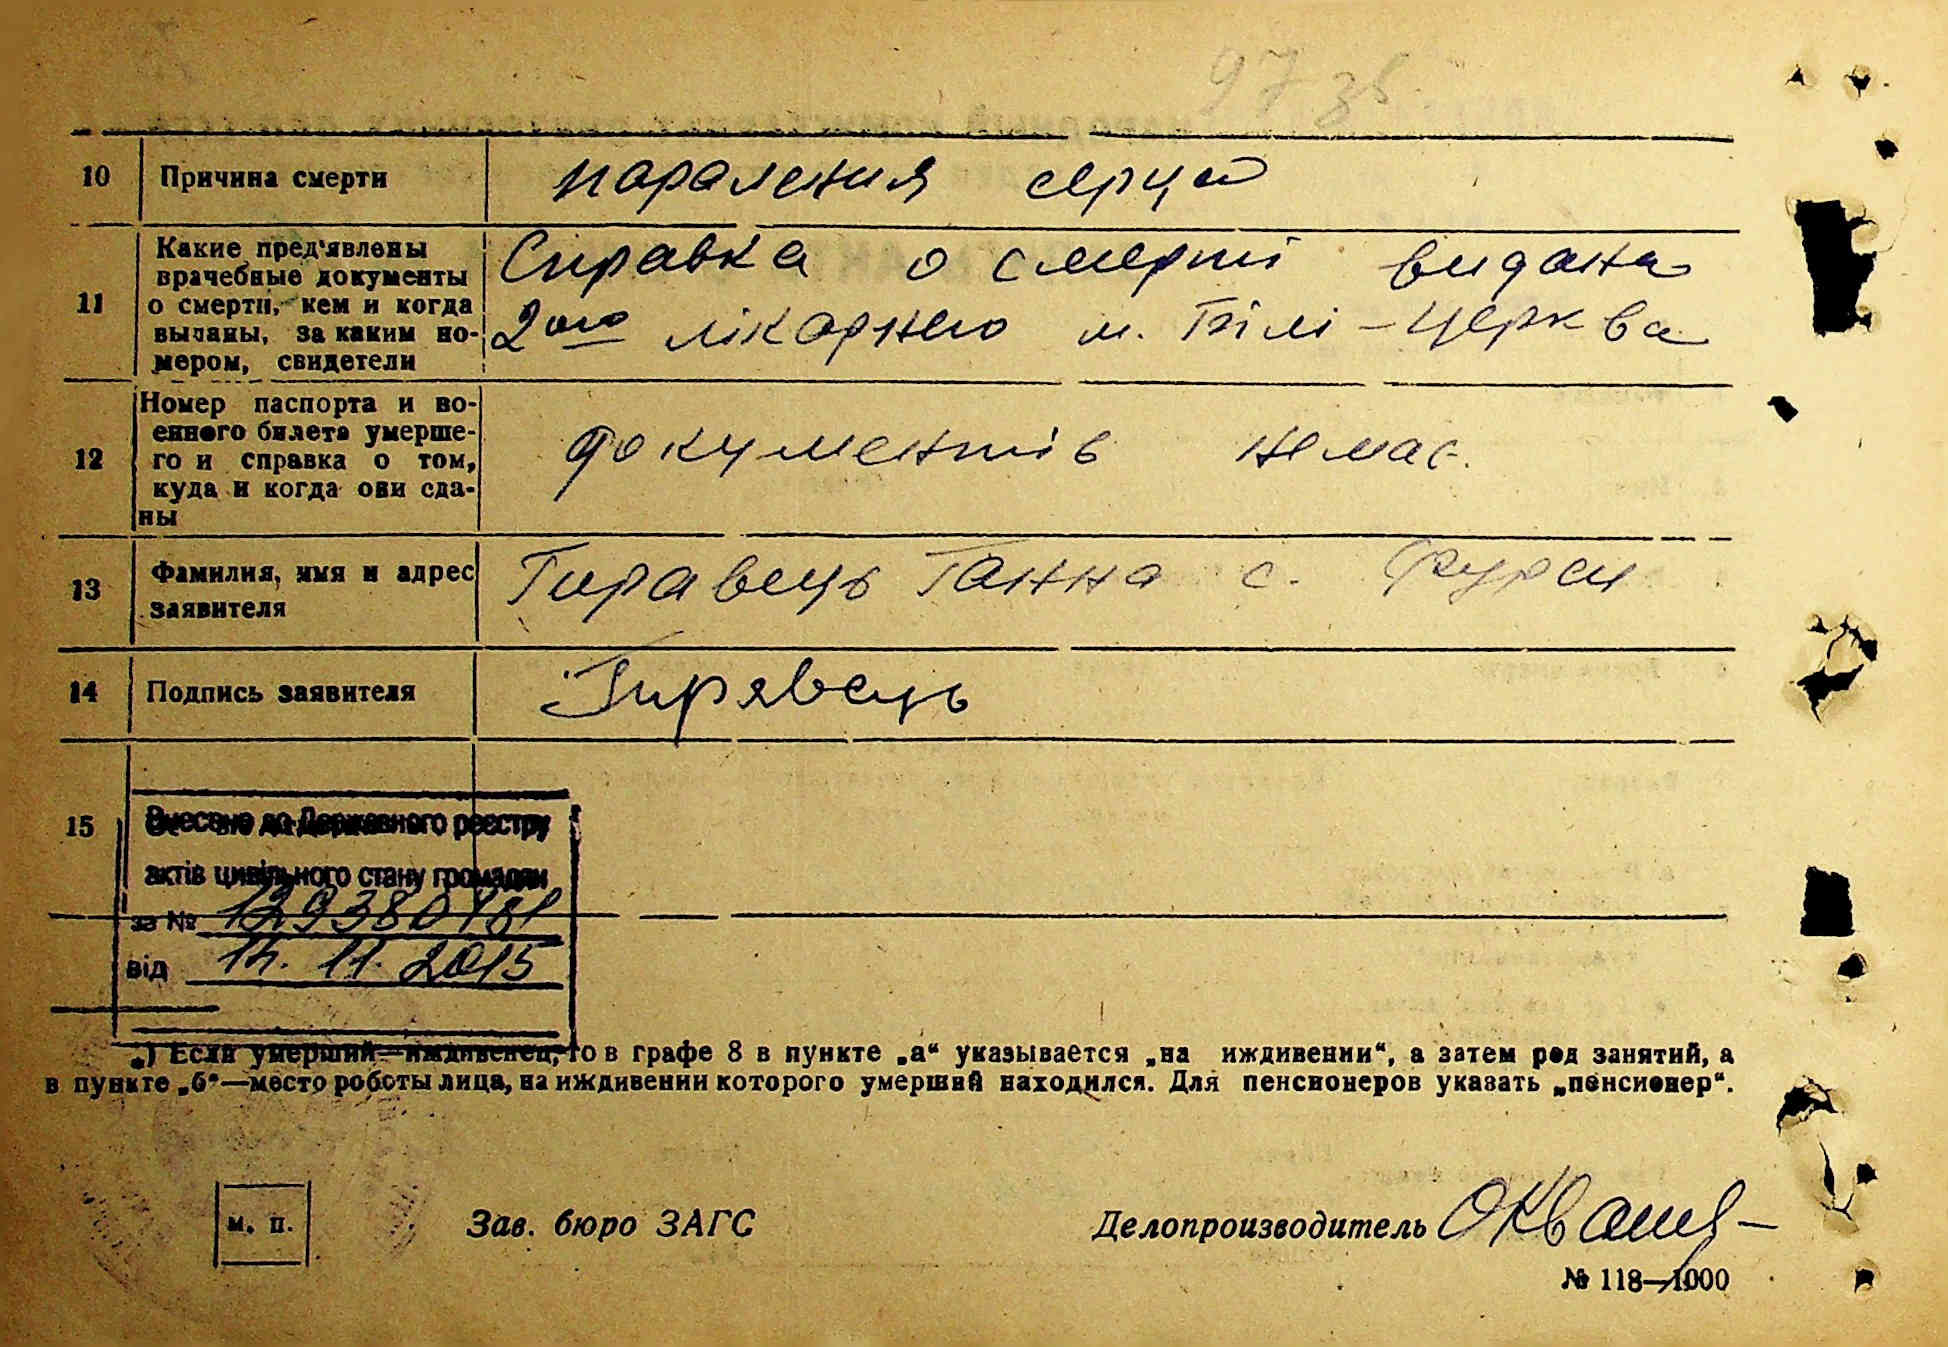 97
10 Причина смерти паралечия серця
11 Какие пред'явлены
врачебные документы
о смерти, кем и когда
выданы, за каким но-
мером, свидетели
Справка о смерті видана
2ою лікарнею м. Білі-Церква
12 Номер паспорта и во-
енного билета умерше-
го и справка о том,
куда и когда они сда-
ны
документів немає.
13 Фамилия, имя и адрес
заявителя
Гиравець Ганна с. Фурси
14 Подпись заявителя Гирявець
15
Внесено до Державного реєстру
актів цивільного стану громадян
за № 129380481
від 14. 11. 2015
*) Если умерший—иждивенец, то в графе 8 в пункте „а“ указывается „на иждивении“, а затем род занятий, а
в пункте „б“—место роботы лица, на иждивении которого умерший находился. Для пенсионеров указать „пенсионер“.
м. п. Зав. бюро ЗАГС Делопроизводитель
№ 118—1000